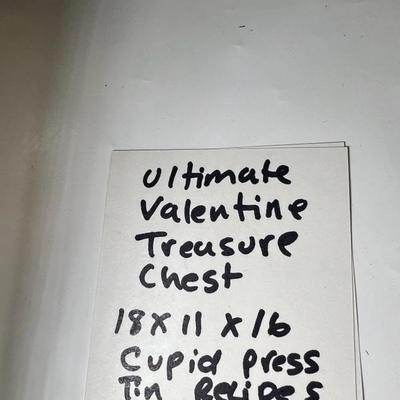 Ultimate
Valentine
Treasure
Chest
18 X 11 X 16
Cupid Press
Tin Recipes